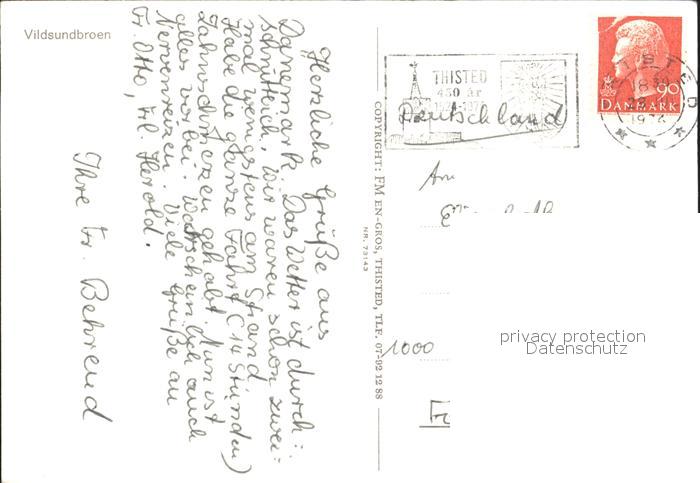 Vildsundbroen
Herzliche Grüße aus
Dänemark. Das Wetter ist durch:
schnittlich. Wir waren schon zwei=
mal wenigstens am Strand.
Habe die ganze Fahrt (14 Stunden)
Zahnschmerzen gehabt. Nun ist
alles vorbei. Watscheinlich auch
Nervenreizen. Viele Grüße an
Fr. Otto, Frl. Herold.
Ihre Fr. Behrend
COPYRIGHT: FM EN-GROS, THISTED, TLF. 07-92 12 88
NR. 73143
THISTED
450 år
Deutschland
90
DANMARK
An
1000
privacy protection
Datenschutz